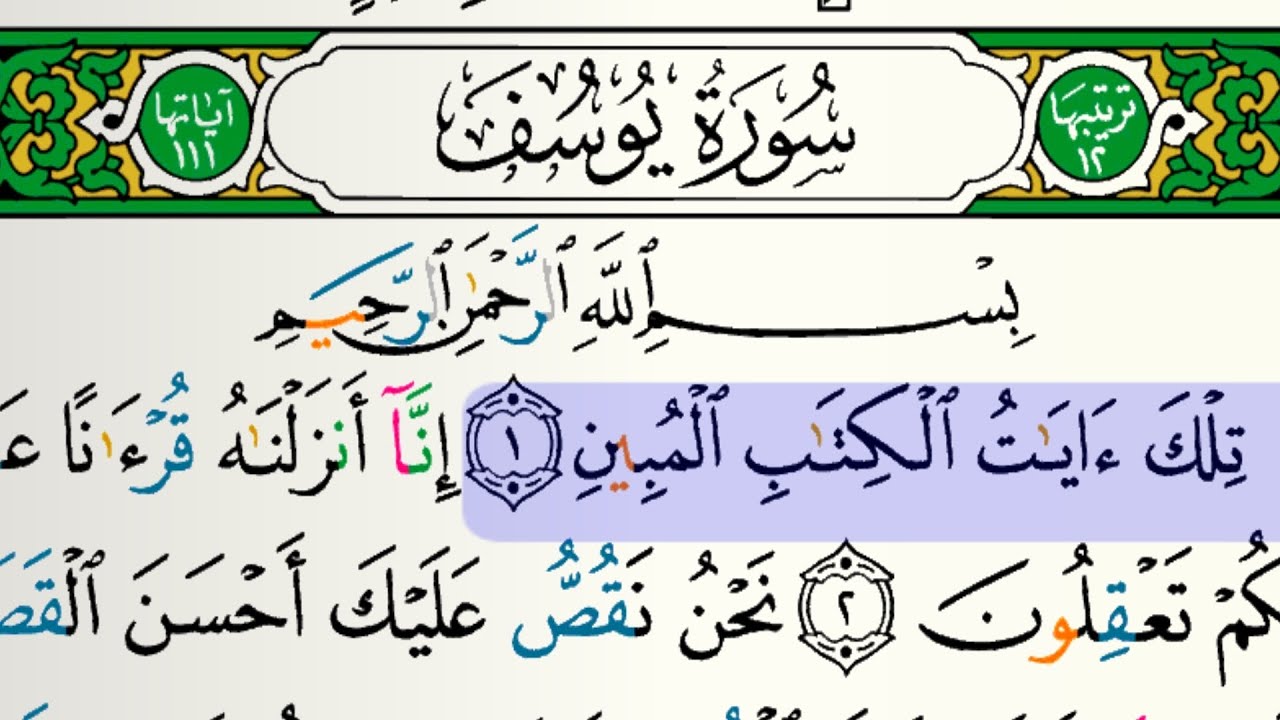 ترتيبها ١٢
سُورَةُ يُوسُفَ
آياتها ١١١
بِسْمِ ٱللَّهِ ٱلرَّحْمَٰنِ ٱلرَّحِيمِ
تِلْكَ ءَايَٰتُ ٱلْكِتَٰبِ ٱلْمُبِينِ ١ إِنَّآ أَنزَلْنَٰهُ قُرْءَٰنًا عَ
كُمْ تَعْقِلُونَ ٢ نَحْنُ نَقُصُّ عَلَيْكَ أَحْسَنَ ٱلْقَصَ